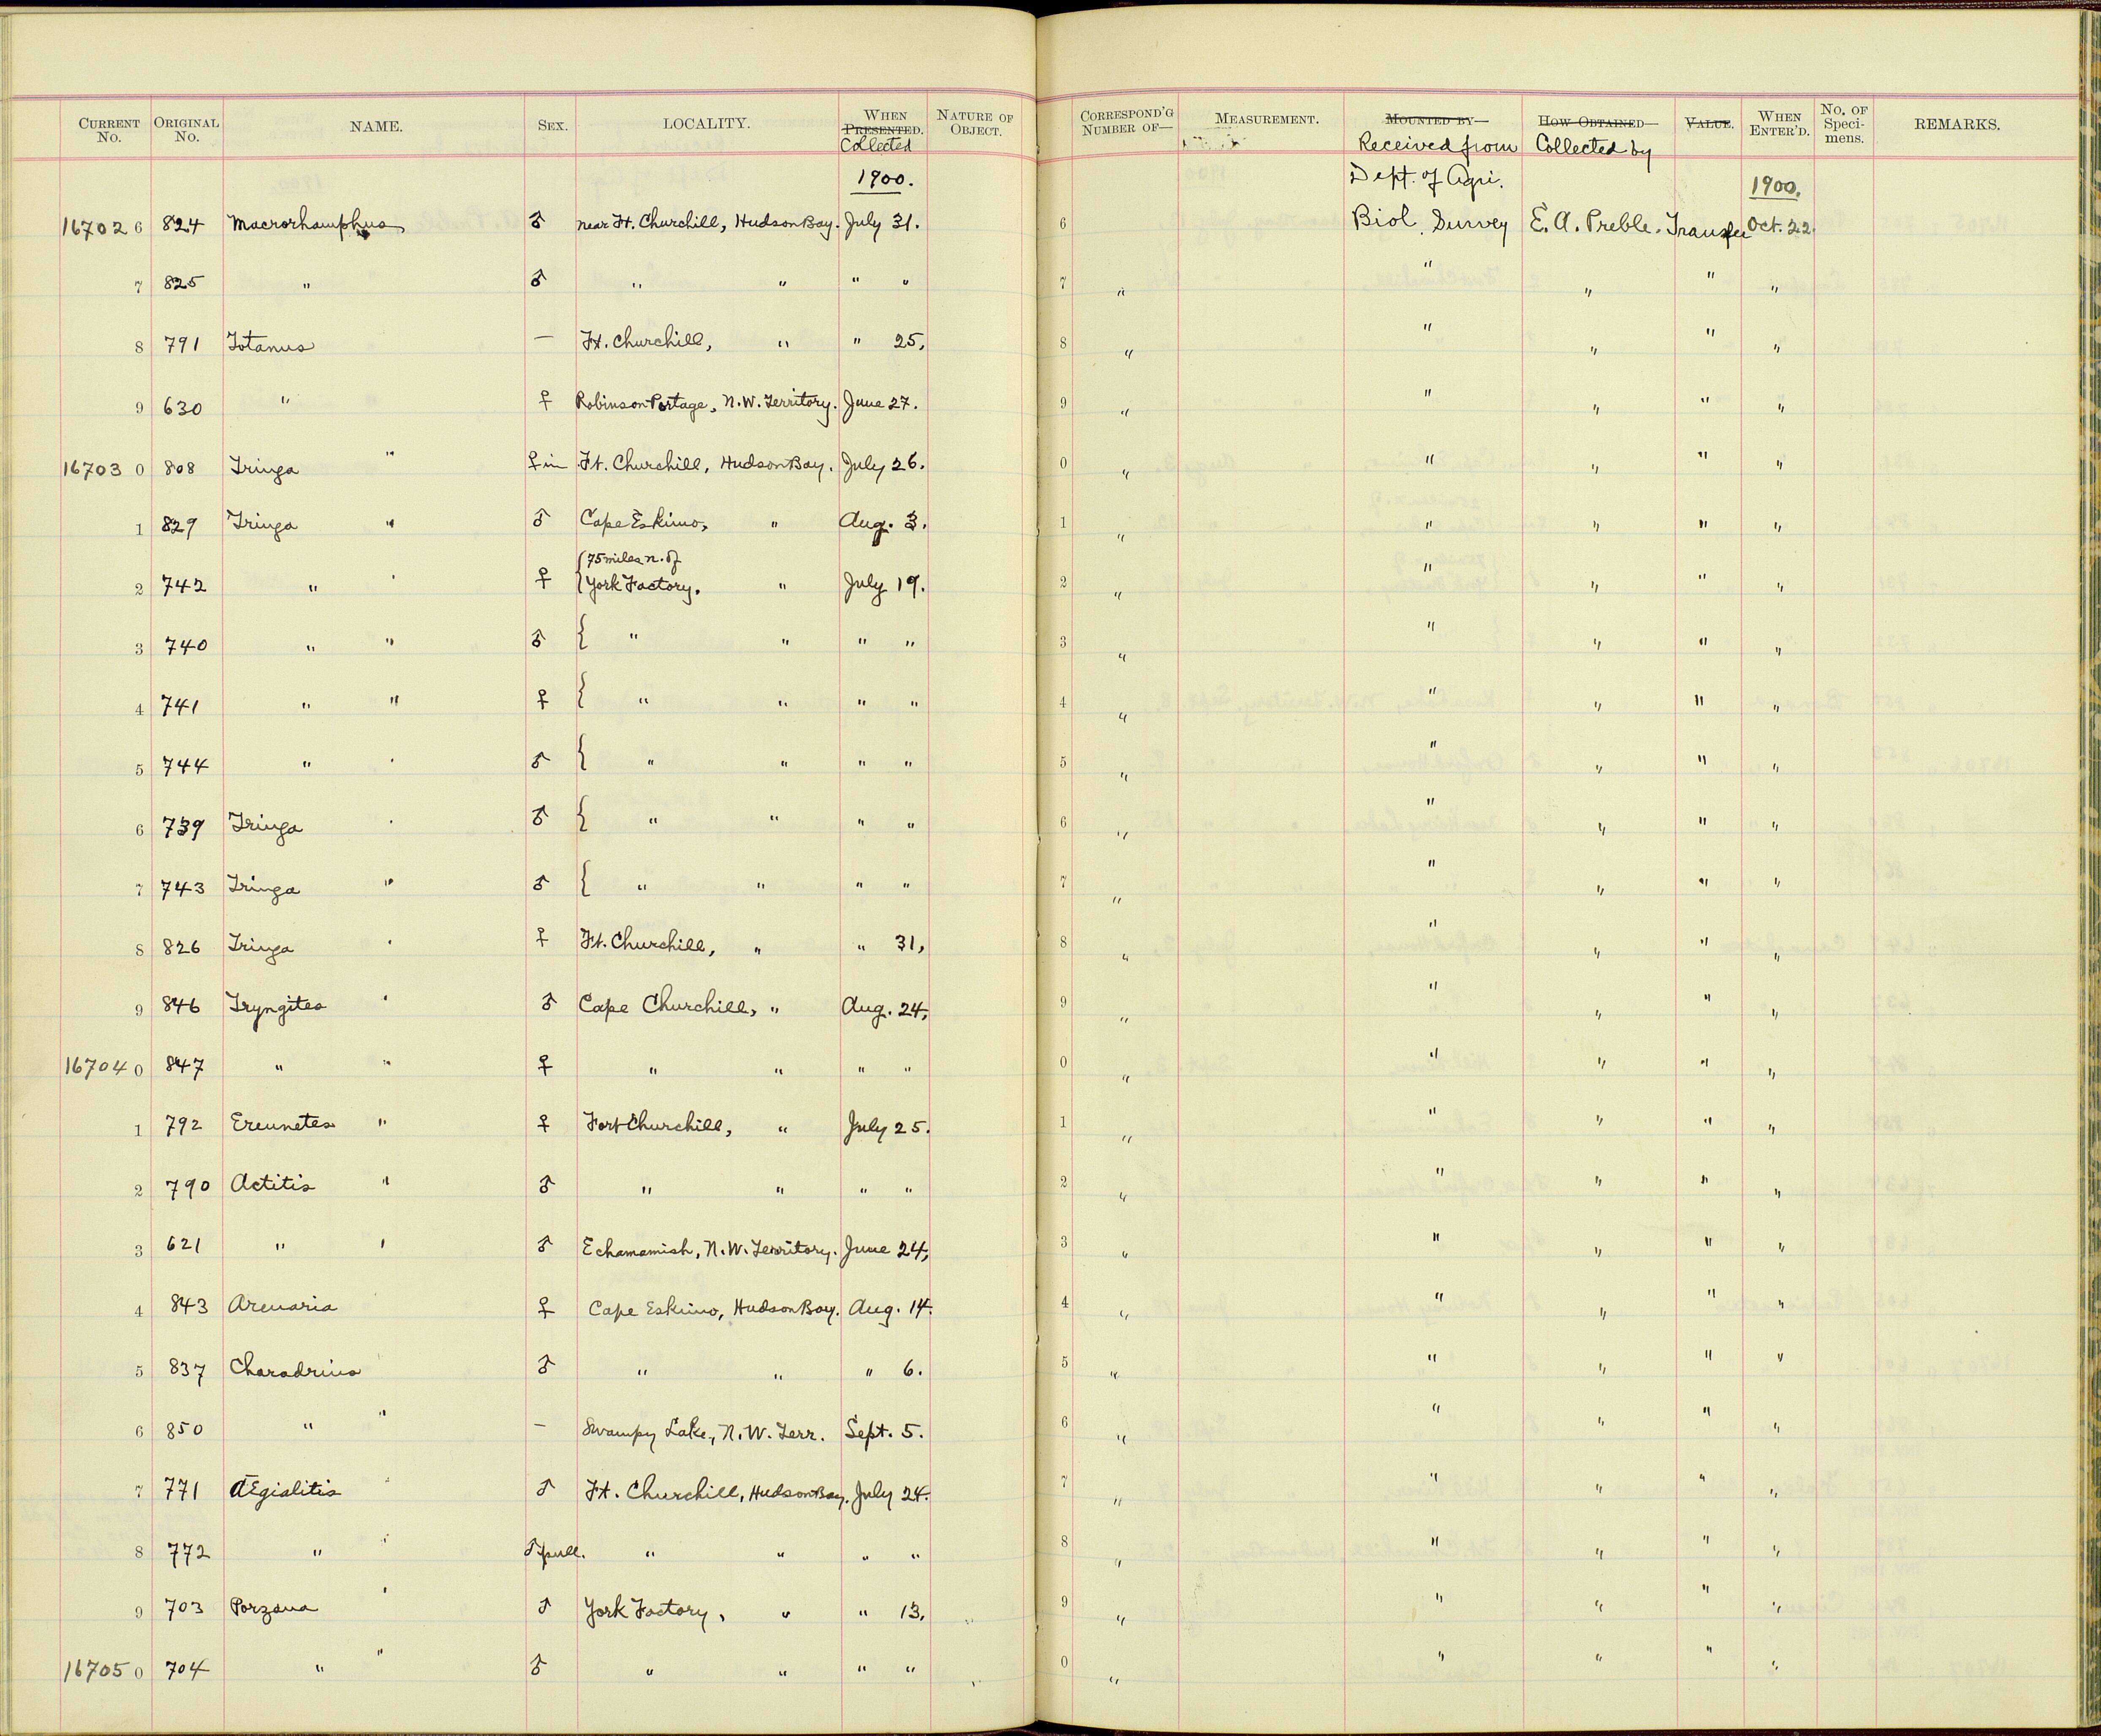 CURRENT No. ORIGINAL No. NAME. SEX. LOCALITY. WHEN PRESENTED. Collected NATURE OF OBJECT. CORRESPOND'G NUMBER OF— MEASUREMENT. MOUNTED BY— Received from HOW OBTAINED— Collected by VALUE. WHEN ENTER'D. No. OF Speci-mens. REMARKS.
1900. Dept. of Agri. 1900.
16702 6 824 Macrorhamphus ♂ near Ft. Churchill, Hudson Bay. July 31. 6 Biol. Survey E. A. Preble. Transfer Oct. 22.
7 825 " ♂ " " " " 7 " " " " "
8 791 Totanus — Ft. Churchill, " " 25, 8 " " " " "
9 630 " ♀ Robinson Portage, N.W. Territory. June 27. 9 " " " " "
16703 0 808 Tringa " ♀ im Ft. Churchill, Hudson Bay. July 26. 0 " " " " "
1 829 Tringa " ♂ Cape Eskimo, " Aug. 3. 1 " " " " "
{75 miles n. of
2 742 " ♀ {York Factory. " July 19. 2 " " " " "
3 740 " " ♂ { " " " " 3 " " " " "
4 741 " " ♀ { " " " " 4 " " " " "
5 744 " ♂ { " " " " 5 " " " " "
6 739 Tringa ♂ { " " " " 6 " " " " "
7 743 Tringa " ♂ { " " " " 7 " " " " "
8 826 Tringa ♀ Ft. Churchill, " " 31, 8 " " " " "
9 846 Tryngites ' ♂ Cape Churchill, " Aug. 24, 9 " " " " "
16704 0 847 " " ♀ " " " " 0 " " " " "
1 792 Ereunetes " ♀ Fort Churchill, " July 25. 1 " " " " "
2 790 Actitis " ♂ " " " " 2 " " " " "
3 621 " ' ♂ Echamamish, N.W. Territory. June 24, 3 " " " " "
4 843 Arenaria ♀ Cape Eskimo, Hudson Bay. Aug. 14. 4 " " " " "
5 837 Charadrius ♂ " " " 6. 5 " " " " "
6 850 " " — Swampy Lake, N.W. Terr. Sept. 5. 6 " " " " "
7 771 Ægialitis ' ♂ Ft. Churchill, Hudson Bay. July 24. 7 " " " " "
8 772 " ' ♂ pull. " " " " 8 " " " " "
9 703 Porzana ' ♂ York Factory, " " 13, 9 " " " " "
16705 0 704 " " ♂ " " " " 0 " " " " "